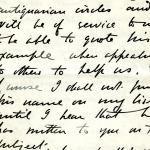 antiquarian circles and
will be of service to u
to be able to quote his
example when appeali
to others to help us.
course I shall not pu
his name on my lis
until I hear that h
has written to you on th
subject.